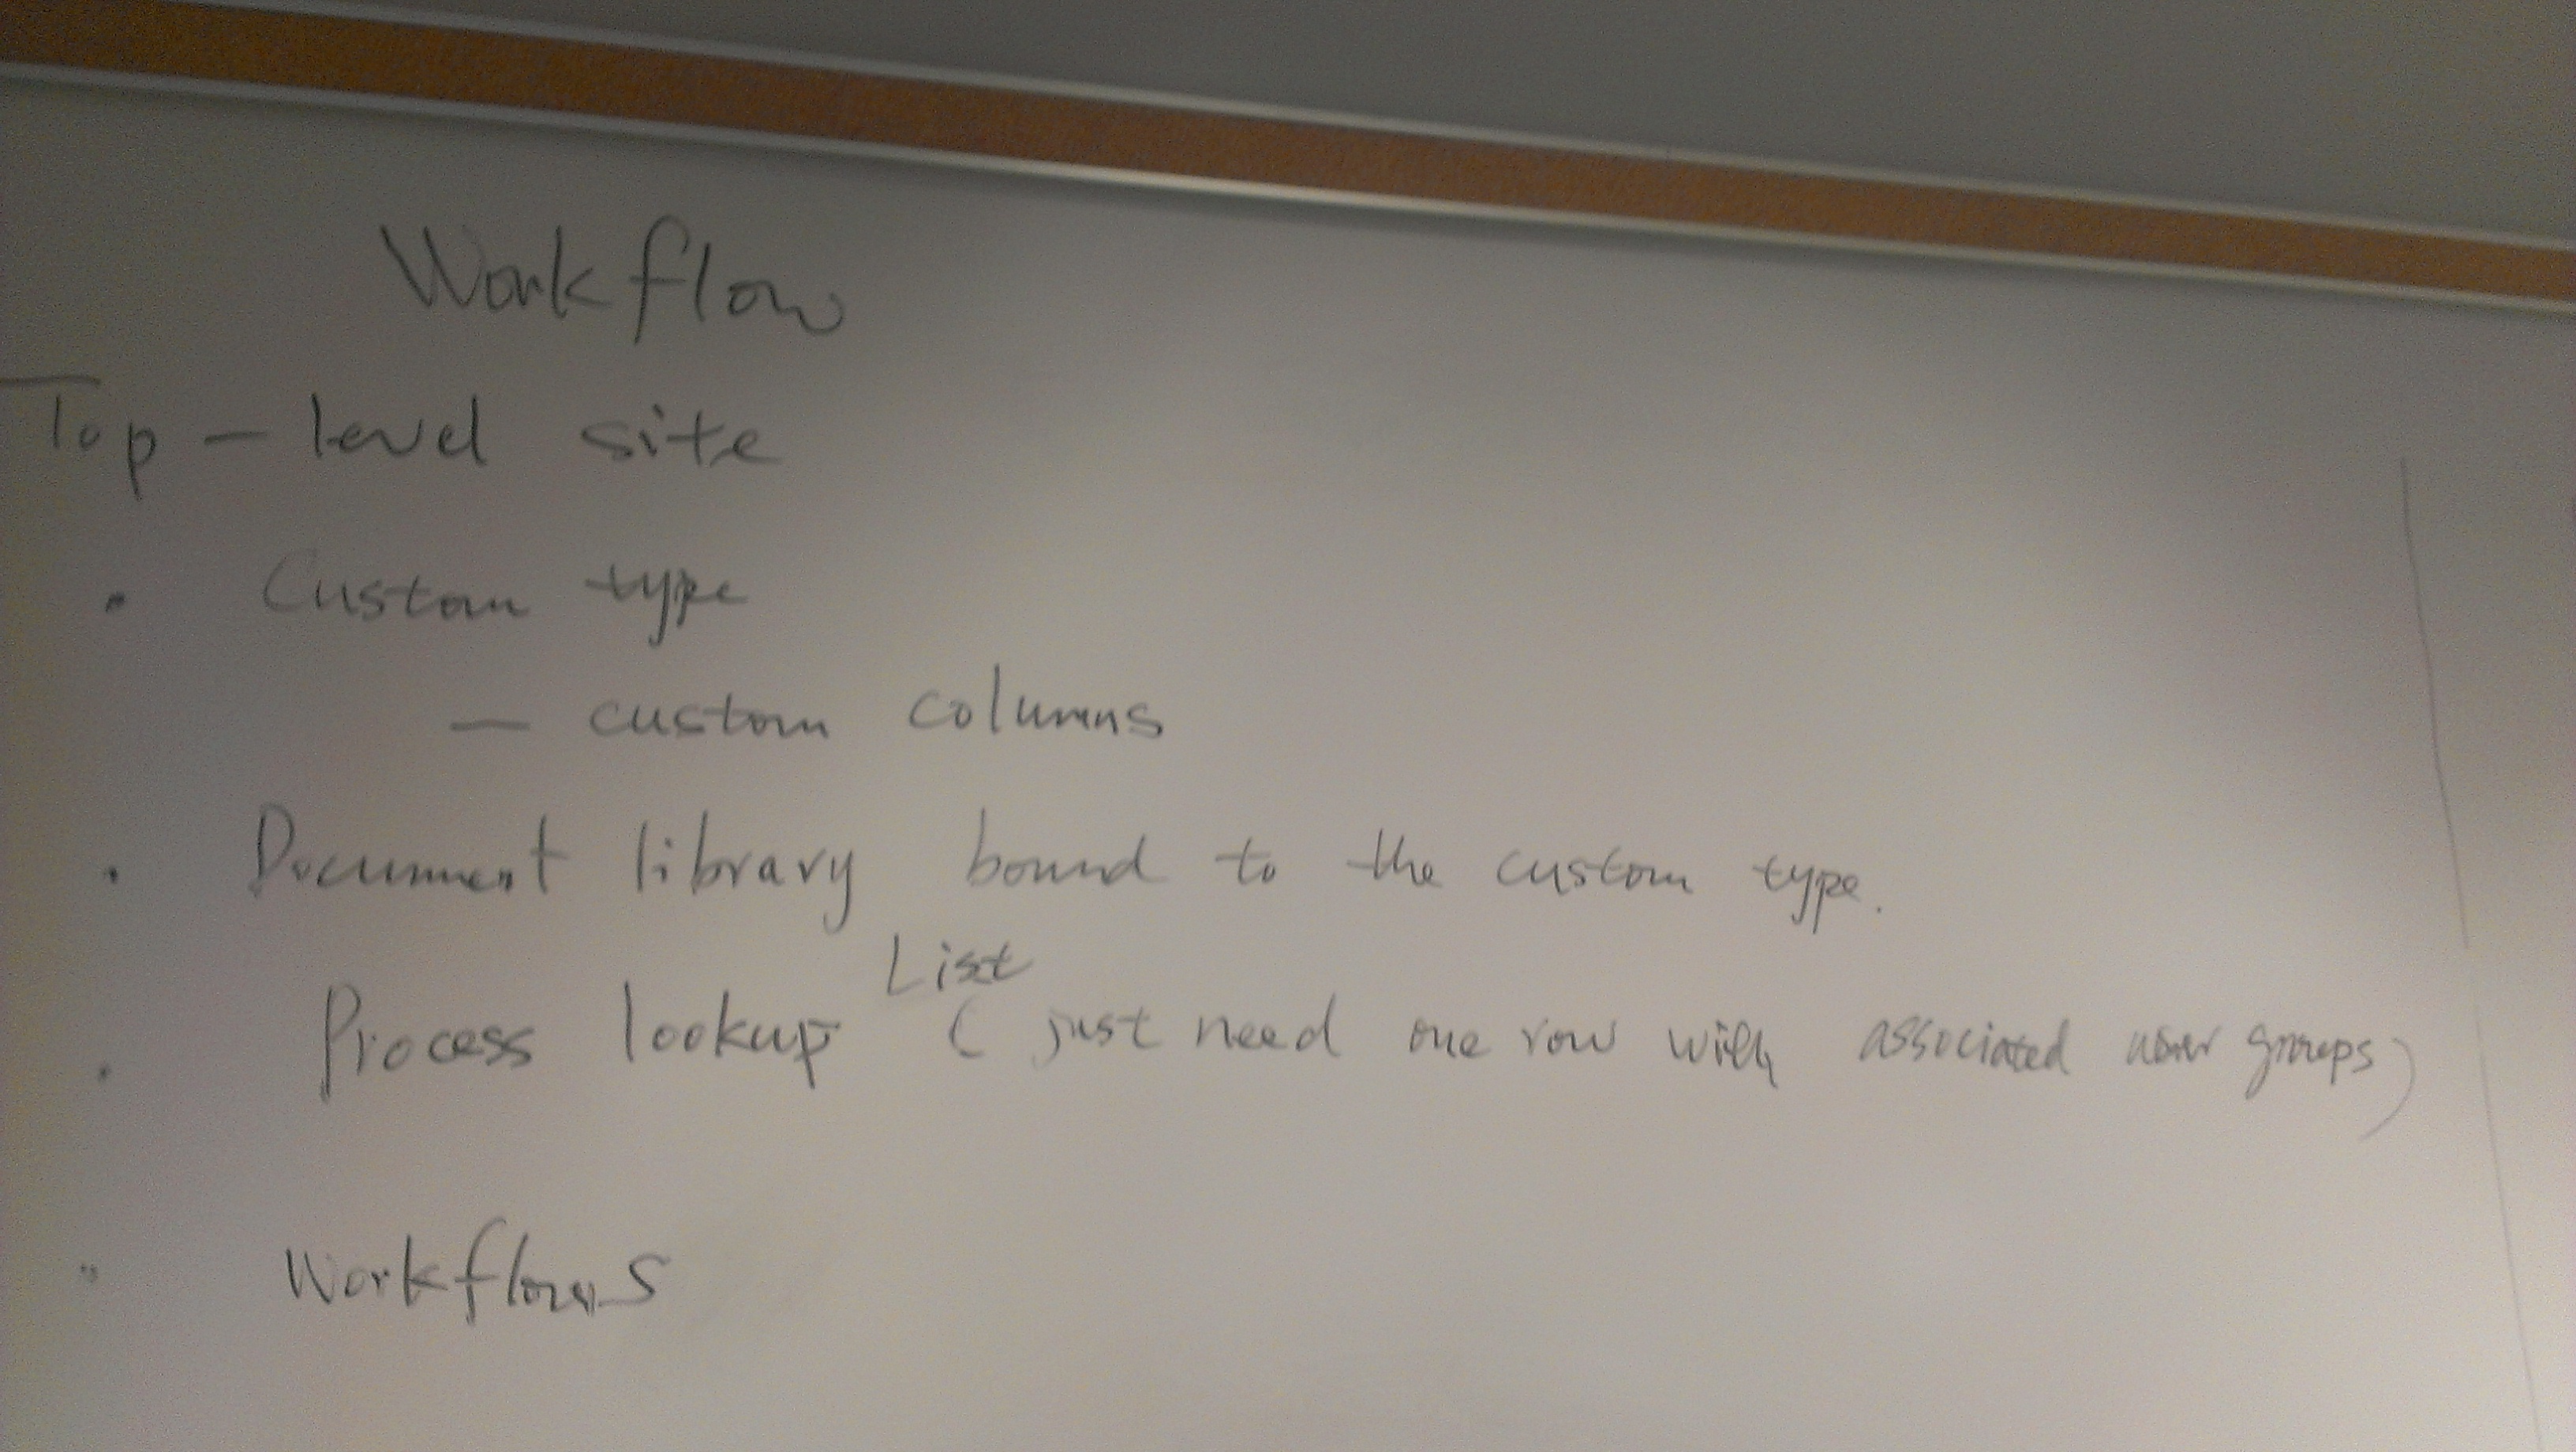 Workflow
Top-level site
• Custom type
— custom columns
• Document library bound to the custom type.
List
• Process lookup (just need one row with associated user groups)
• Workflows